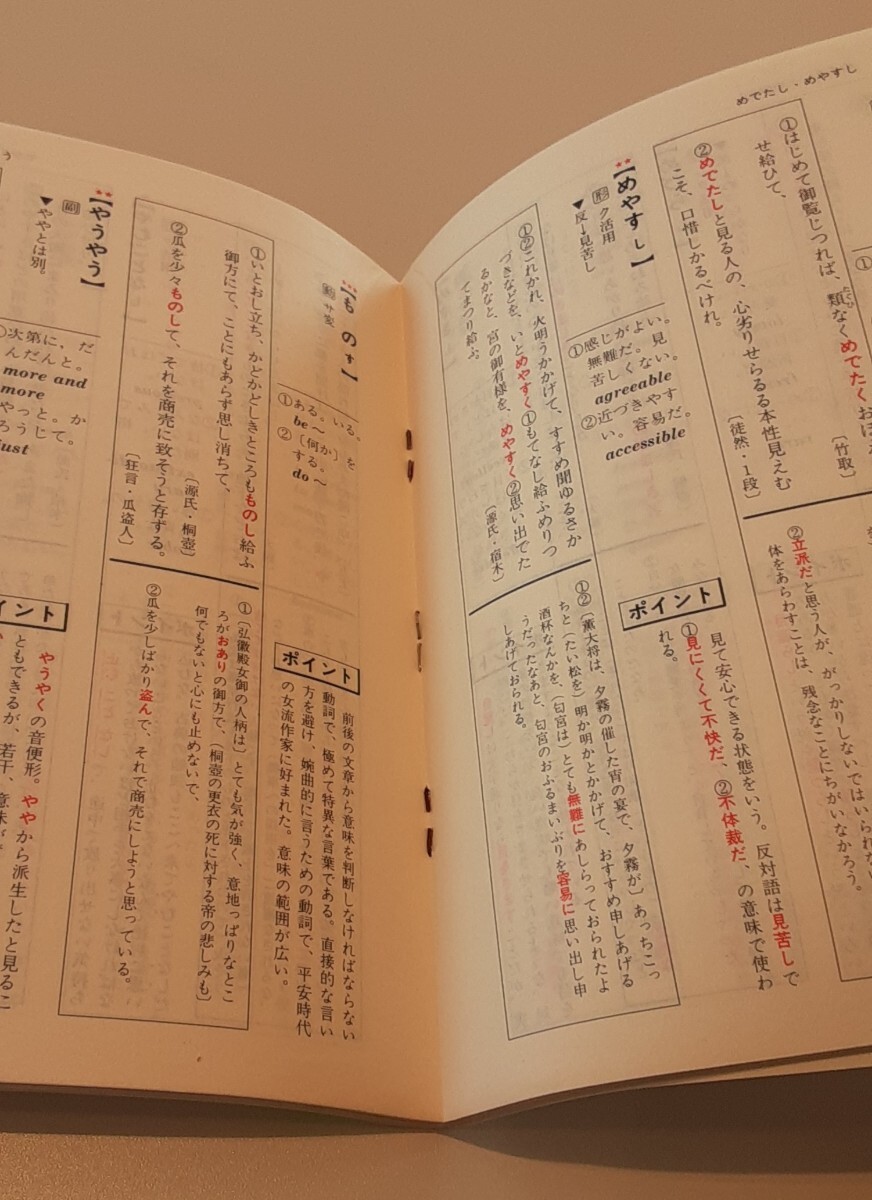 めでたし・めやすし
①はじめて御覧じつれば、類なくめでたくおぼ
たぐひ
せ給ひて、
〔竹取〕
②めでたしと見る人の、心劣りせらるる本性見えむ
こそ、口惜しかるべけれ。
〔徒然・1段〕
②立派だと思う人が、がっかりしないではいられない
体をあらわすことは、残念なことにちがいなかろう。
**【めやすし】
形 ク活用
▼反→見苦し
①感じがよい。見
苦しくない。
無難だ。
agreeable
②近づきやす
い。容易だ。
accessible
ポイント
見て安心できる状態をいう。反対語は見苦しで
①見にくくて不快だ、②不体裁だ、の意味で使わ
れる。
①②これかれ、火明うかかげて、すすめ聞ゆるさか
づきなどを、いとめやすく①もてなし給ふめりつ
るかなと、宮の御有様を、めやすく②思い出でた
てまつり給ふ。
〔源氏・宿木〕
①②〔薫大将は、夕霧の催した宵の宴で、夕霧が〕あっちこっ
ちと（たい松を）明か明かとかかげて、おすすめ申しあげる
酒杯なんかを、（匂宮は）とても無難にあしらっておられたよ
うだったなあと、匂宮のおふるまいぶりを容易に思い出し申
しあげておられる。
**【ものす】
動 サ変
①ある。いる。
be ~
②〔何か〕を
する。
do ~
ポイント
前後の文章から意味を判断しなければならない
動詞で、極めて特異な言葉である。直接的な言い
方を避け、婉曲的に言うための動詞で、平安時代
の女流作家に好まれた。意味の範囲が広い。
①いとおし立ち、かどかどしきところもものし給ふ
御方にて、ことにもあらず思し消ちて、
〔源氏・桐壺〕
②瓜を少々ものして、それを商売に致そうと存ずる。
〔狂言・瓜盗人〕
①〔弘徽殿女御の人柄は〕とても気が強く、意地っぱりなとこ
ろがおありの御方で、（桐壺の更衣の死に対する帝の悲しみも）
何でもないと心にも止めないで、
②瓜を少しばかり盗んで、それで商売にしようと思っている。
**【やうやう】
副
▼ややとは別。
①次第に、だ
んだんと。
more and
more
やっと。か
ろうじて。
just
イント
やうやくの音便形。ややから派生したと見るこ
ともできるが、若干、意味が